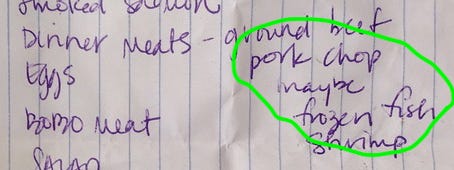 smoked salmon
Dinner Meats - ground beef
pork chop
Eggs
maybe
frozen fish
BOBO meat
shrimp
SALAD